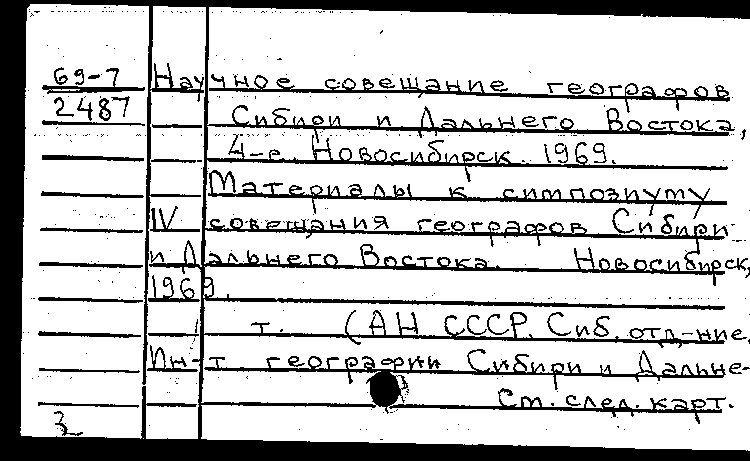 69-7 Научное совещание географов
2487 Сибири и Дальнего Востока,
4-е. Новосибирск. 1969.
Материалы к симпозиуму
IV совещания географов Сибири
и Дальнего Востока. Новосибирск,
1969.
т. (АН СССР. Сиб. отд-ние.
Ин-т географии Сибири и Дальне-
См. след. карт.
3